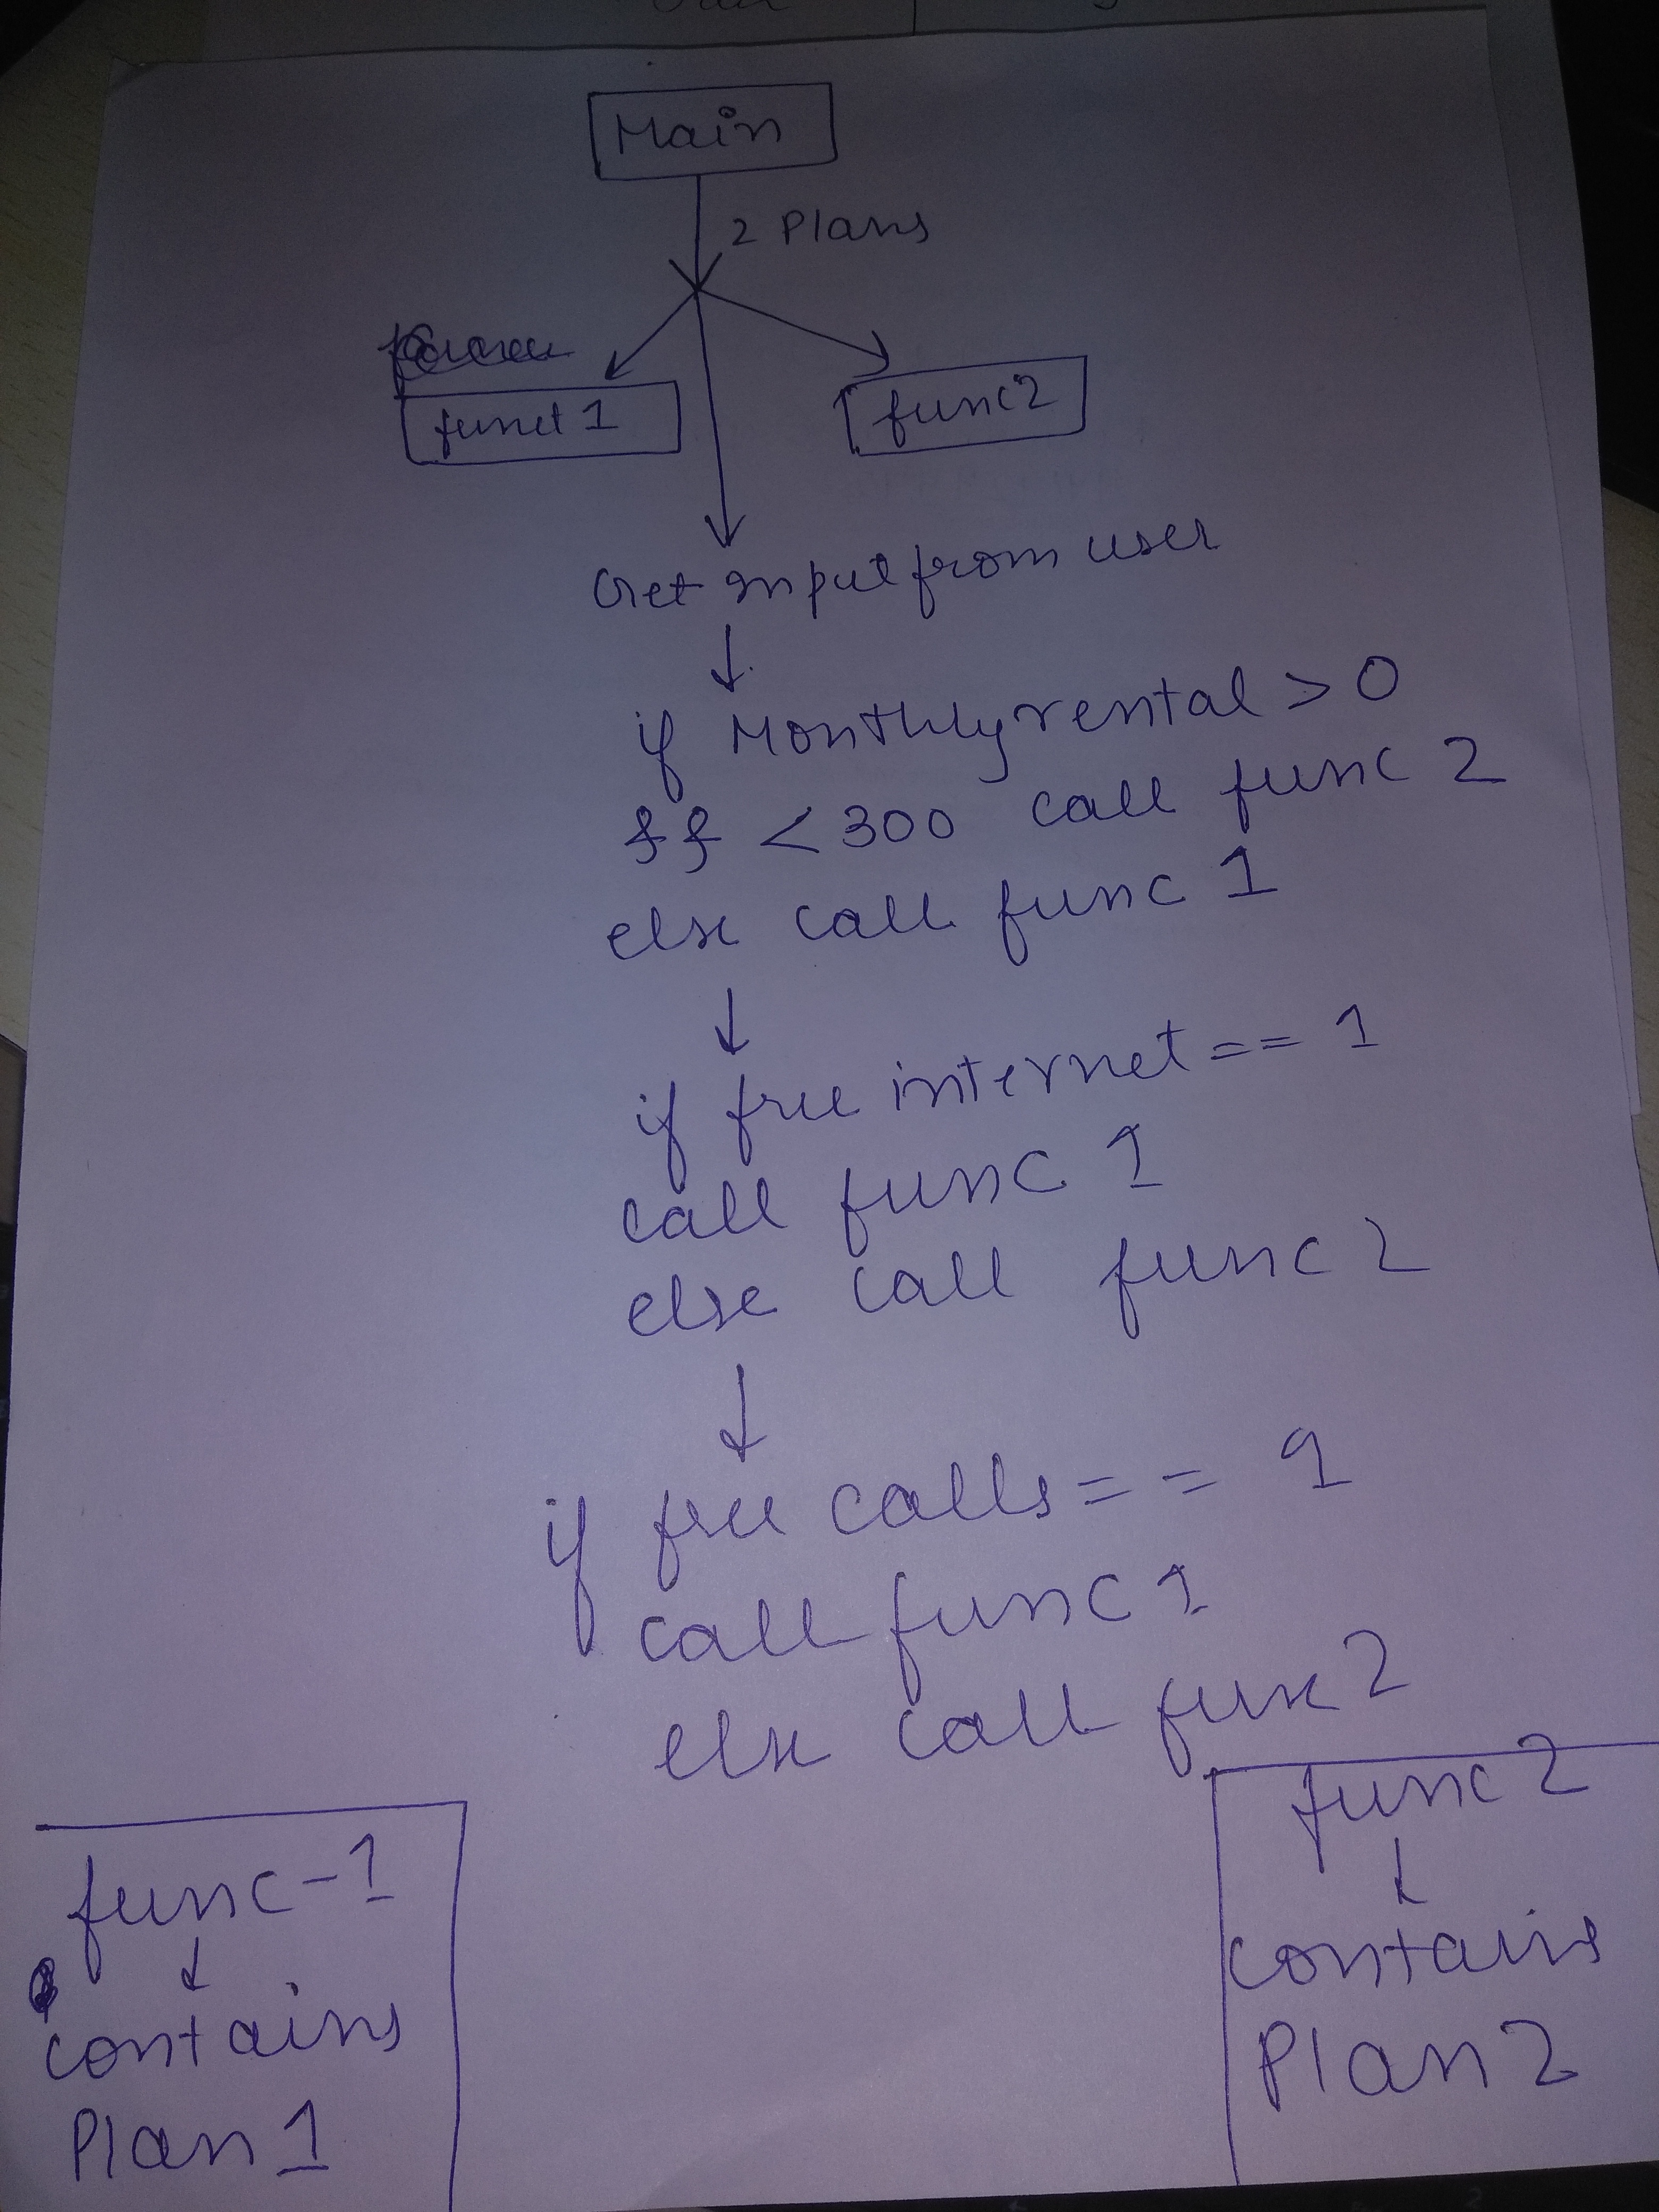 Main
2 Plans
funct 1
func2
Get input from user
if Monthly rental > 0
&& < 300 call func 2
else call func 1
if free internet == 1
call func 1
else call func 2
if free calls == 1
call func 1
else call func 2
func-1
contains
Plan 1
func 2
contains
Plan 2